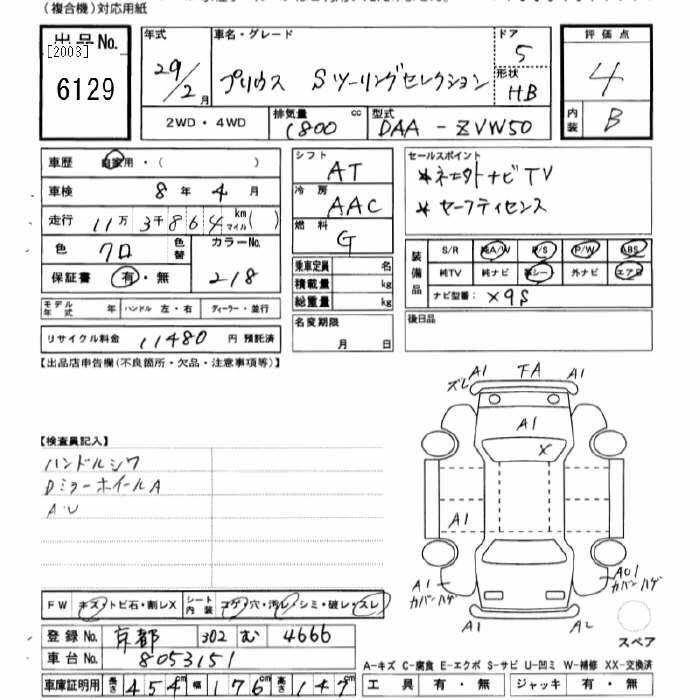 (複合機)対応用紙
出品No. 年式 車名・グレード ドア 評価点
[2003] 29/2月 プリウス Sツーリングセレクション 5 4
6129 形状 HB
2WD・4WD 排気量 1800 cc 型式 DAA-ZVW50 内装 B
車歴 自家用・( )
車検 8年 4月
走行 11万3千864 km マイル( )
色 クロ 色替 カラーNo. 218
保証書 有・無
モデル年式 年 ハンドル 左・右 ディーラー・並行
リサイクル料金 11480 円 預託済
シフト AT
冷房 AAC
燃料 G
乗車定員 名
積載量 kg
総重量 kg
名変期限
月 日
セールスポイント
*ネ土外ナビTV
*セーフティセンス
装備品 S/R 純A/W P/S P/W ABS
純TV 純ナビ 革シー 外ナビ エアB
ナビ型番: X9S
後日品
【出品店申告欄(不良箇所・欠品・注意事項等)】
【検査員記入】
ハンドルシワ
Dミラーホイール A
A・U
ズレ A1 FA A1
A1
X
A1
A1 カバンハゲ
A01 カバンハゲ
A1 A2
スペア
FW キズ・トビ石・割レX シート内装 コゲ・穴・汚レ・シミ・破レ・スレ
登録No. 京都 302 む 4666
車台No. 8053151
車庫証明用 長さ 454cm 幅 176cm 高さ 147cm
A-キズ C-腐食 E-エクボ S-サビ U-凹ミ W-補修 XX-交換済
工具 有・無 ジャッキ 有・無